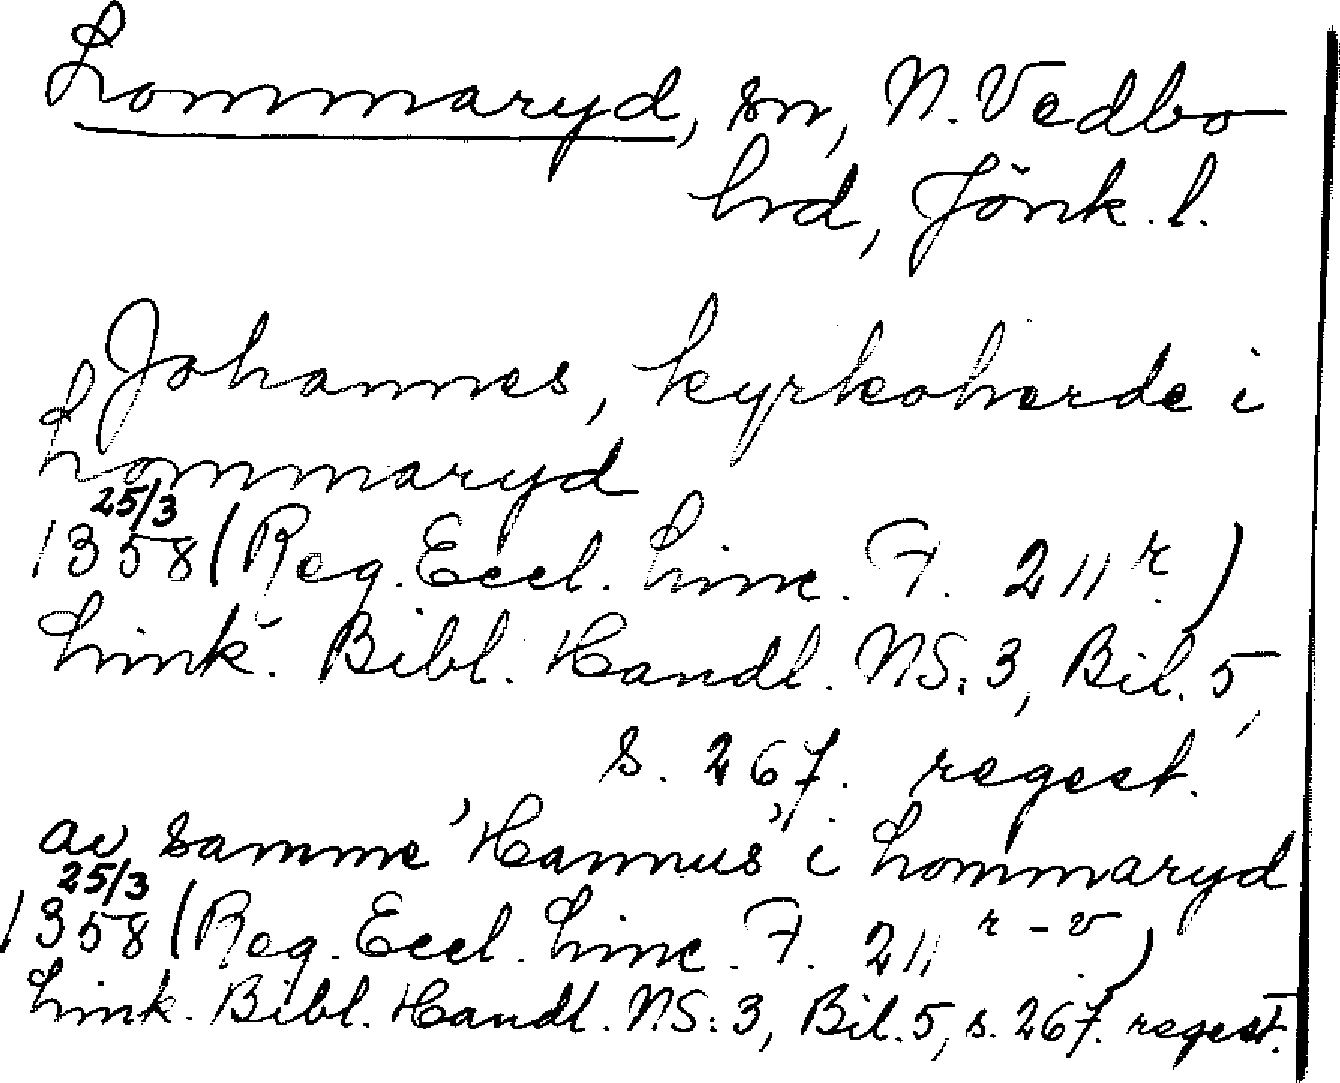 Lommaryd, sn, N. Vedbo
hrd, Jönk. l.
Johannes, kyrkoherde i
Lommaryd
25/3
1358 (Reg. Eccl. Linc. F. 211 r.)
Link. Bibl. Handl. NS. 3, Bil. 5,
s. 267. regest.
av samme 'Hannus' i Lommaryd
25/3
1358 (Reg. Eccl. Linc. F. 211 r-v.)
Link. Bibl. Handl. NS: 3, Bil. 5, s. 267. regest.